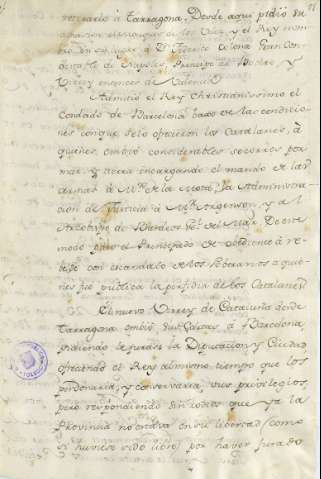 retirarse à Tarragona. Desde aquí pidió su
de los Velez, y el Rey nom
en su lugar à Dn. Fadrique Colona Gran Con
destable de Napoles, Principe de Botero y
Virrey entonces de Valencia.
Admitió el Rey Christianissimo el
Condado de Barcelona baxo de las condicio
nes con que se lo ofrecieron los Catalanes, à
quienes embió considerables socorros por
mar, y tierra encargando el mando de las
armas à Mr. de la Mota, la Administra
cion de Justicia à Mr. Argenson, y al
Arzobispo de Burdeos el del Mar. De este
modo pasó el Principado de obediente à re
belde con escandalo de los Soberanos a quie
nes fue publica la perfidia de los Catalanes.
El nuevo Virrey de Cataluña desde
Tarragona embió sus Cartas à Barcelona
pidiendo le jurase la Diputacion, y Ciudad
ofreciendo el Rey al mismo tiempo que los
perdonaria, y conservaria sus privilegios,
pero respondiendo que ya la
Provincia no estaba en su libertad (como
si huviese sido libre) por haver jurado